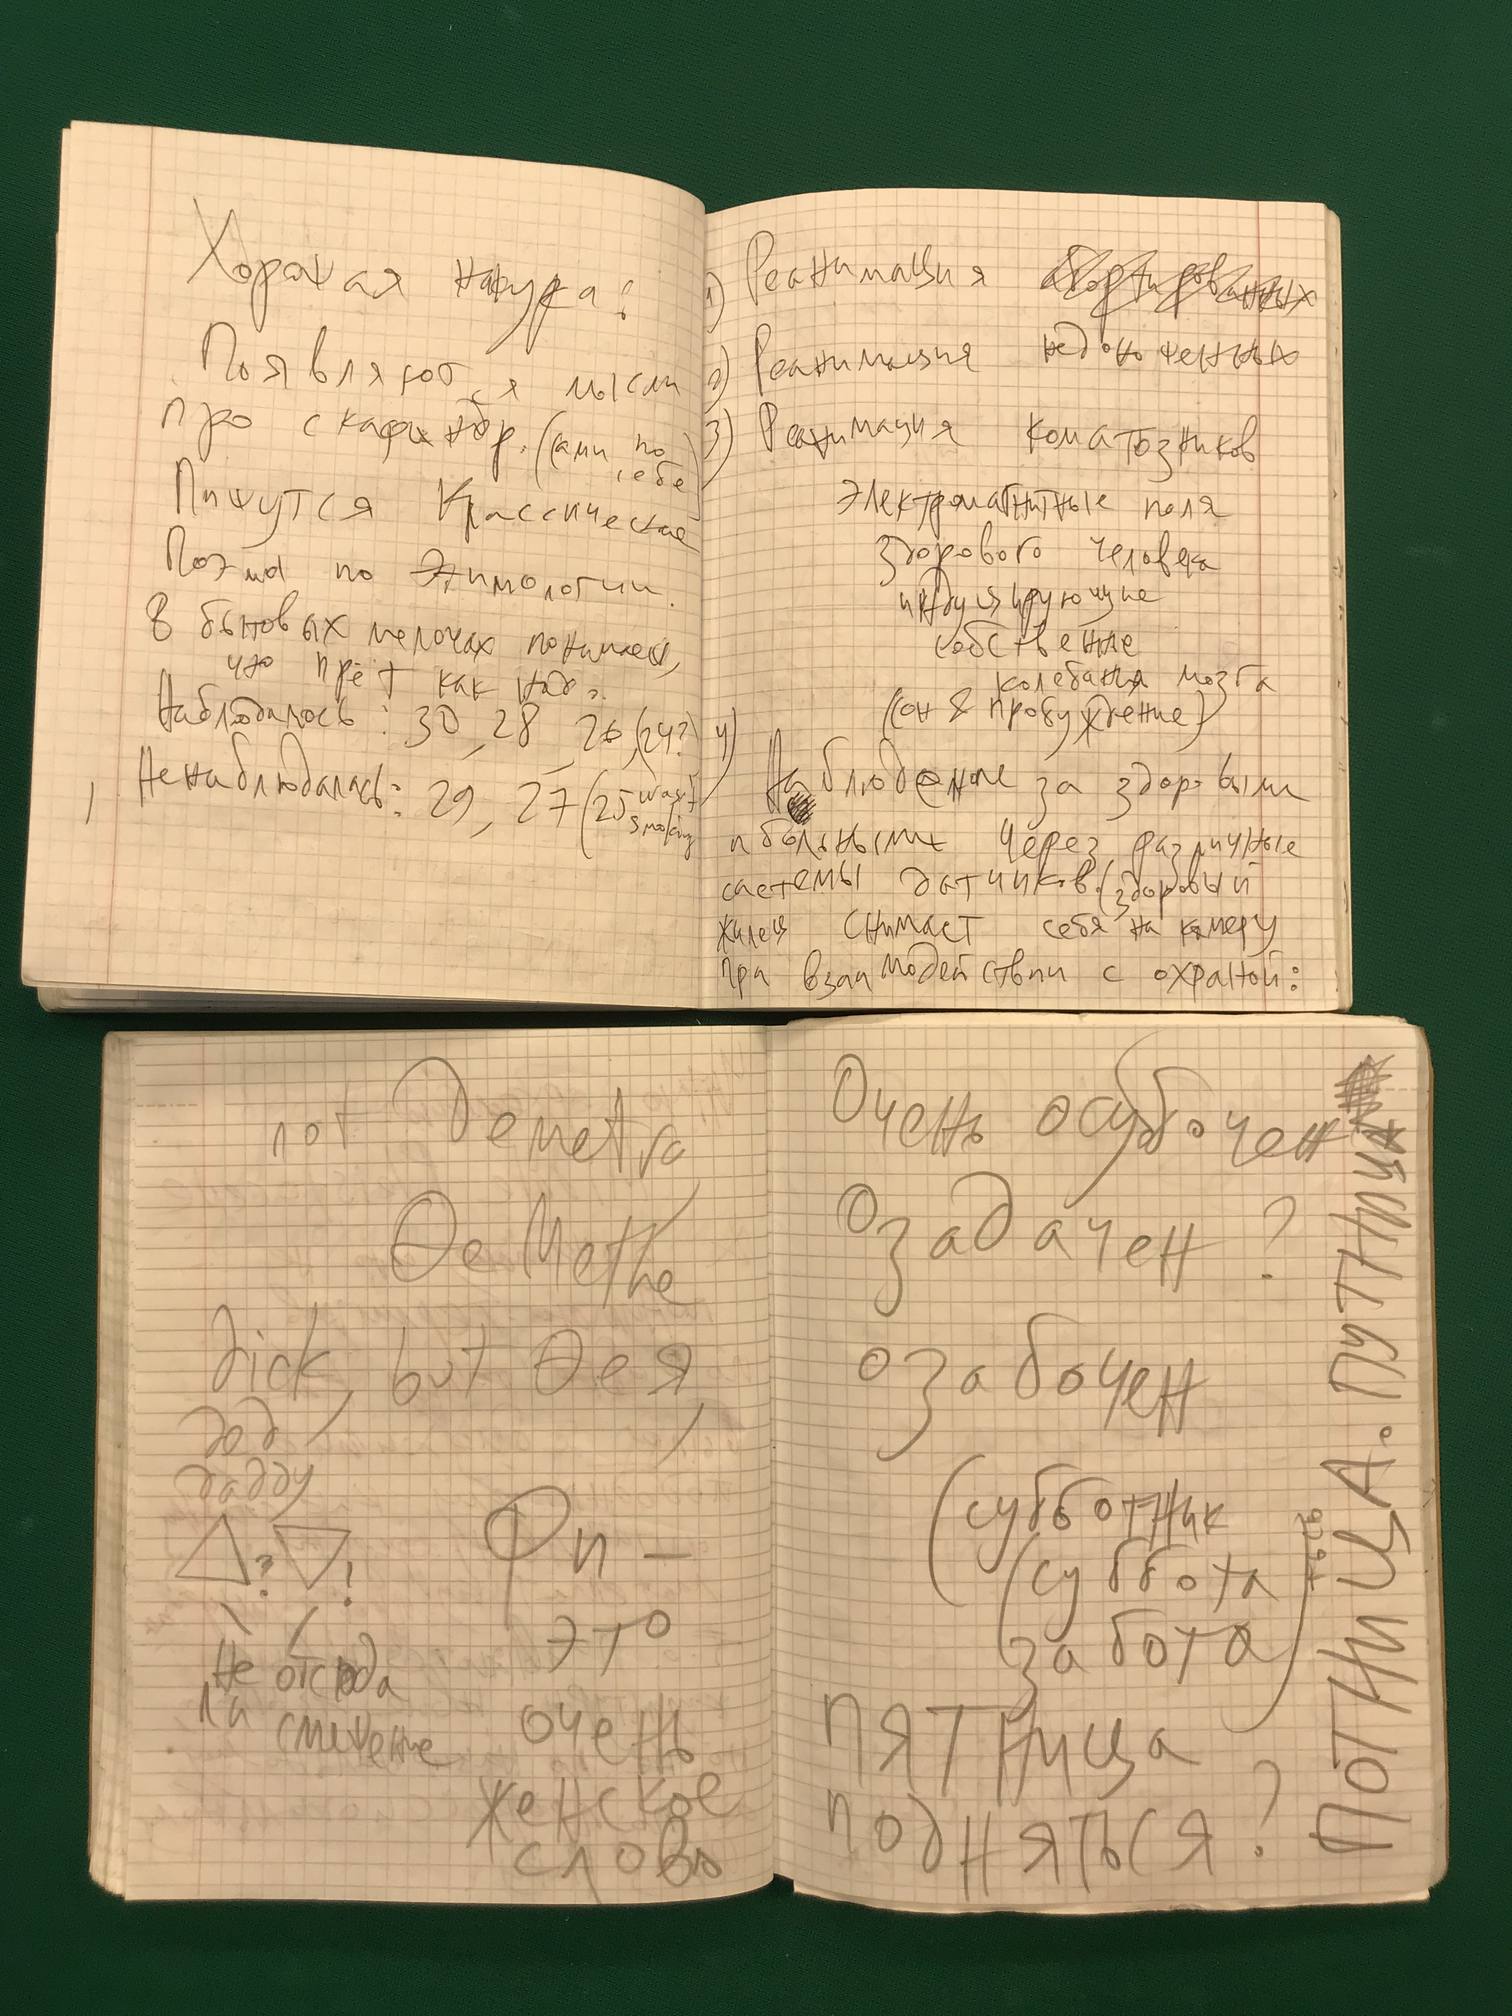 Хорошая натура:
Появляются мысли
про скафандр. (сами по
себе)
Пишутся Классические
Поэмы по Этимологии.
В бытовых мелочах понимаем,
что прёт как надо.
Наблюдалось: 30, 28, 26, (24?)
Не наблюдалась: 29, 27 (25 wasn't
smoking
1) Реанимация абортированных
2) Реанимация недоношенных
3) Реанимация коматозников
Электромагнитные поля
здорового человека
индуцирующие
собственные
колебания мозга
(он & пробуждение)
4) Наблюдение за здоровыми
и больными через различные
системы датчиков. (здоровый
жилец снимает себя на камеру
при взаимодействии с охраной:
not Demetra
De Methe
dick, but Дея,
дод
daddy
? !
не отсюда
ли смещение
Фи –
это
очень
женское
слово
Очень осубочен
Озадачен ?
Озабочен
(субботник
(суббота
забота)
тысь
пятница
подняться?
ПОТНИЦА. ПУТНИЦА